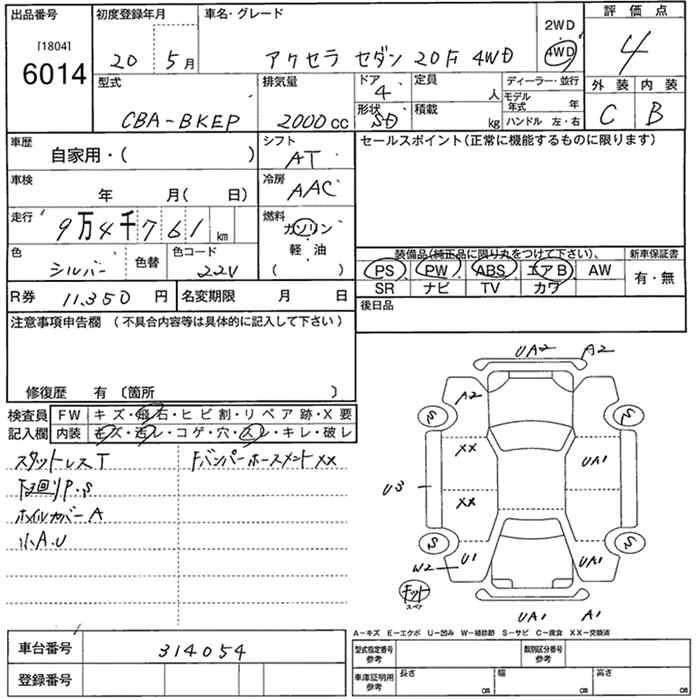 出品番号
[1804]
6014
初度登録年月
20 5月
車名・グレード
アクセラ セダン 20F 4WD
2WD
4WD
評価点
4
外装 内装
C B
型式
CBA-BKEP
排気量
2000cc
ドア
4
形状
SD
定員
人
積載
kg
ディーラー・並行
モデル年式 年
ハンドル 左・右
車歴
自家用・( )
シフト
AT
車検
年 月( 日)
冷房
AAC
走行
9万4千761km
燃料
ガソリン
軽・油
( )
色
シルバー
色替
色コード
22V
R券 11.350 円
名変期限 月 日
セールスポイント(正常に機能するものに限ります)
装備品(純正品に限り丸をつけて下さい)、
PS PW ABS エアB AW
SR ナビ TV カワ
新車保証書
有・無
後日品
注意事項申告欄(不具合内容等は具体的に記入して下さい)
修復歴 有〔箇所 〕
検査員記入欄
FW キズ・飛石・ヒビ割・リペア跡・X要
内装 キズ・汚レ・コゲ・穴・スレ・キレ・破レ
スタットレスT
FバンパーホースメントXX
下回りP.S
ホイルカバーA
小A.U
UA2 A2
A2
S S
XX
UA1
U3
XX
S S
W2 U1 UA1
キット
スペア
UA1 A1
A-キズ E-エクボ U-凹み W-補修跡 S-サビ C-腐食 XX-交換済
車台番号
314054
登録番号
型式指定番号
参考
類別区分番号
参考
車庫証明用
参考
長さ cm
幅 cm
高さ cm